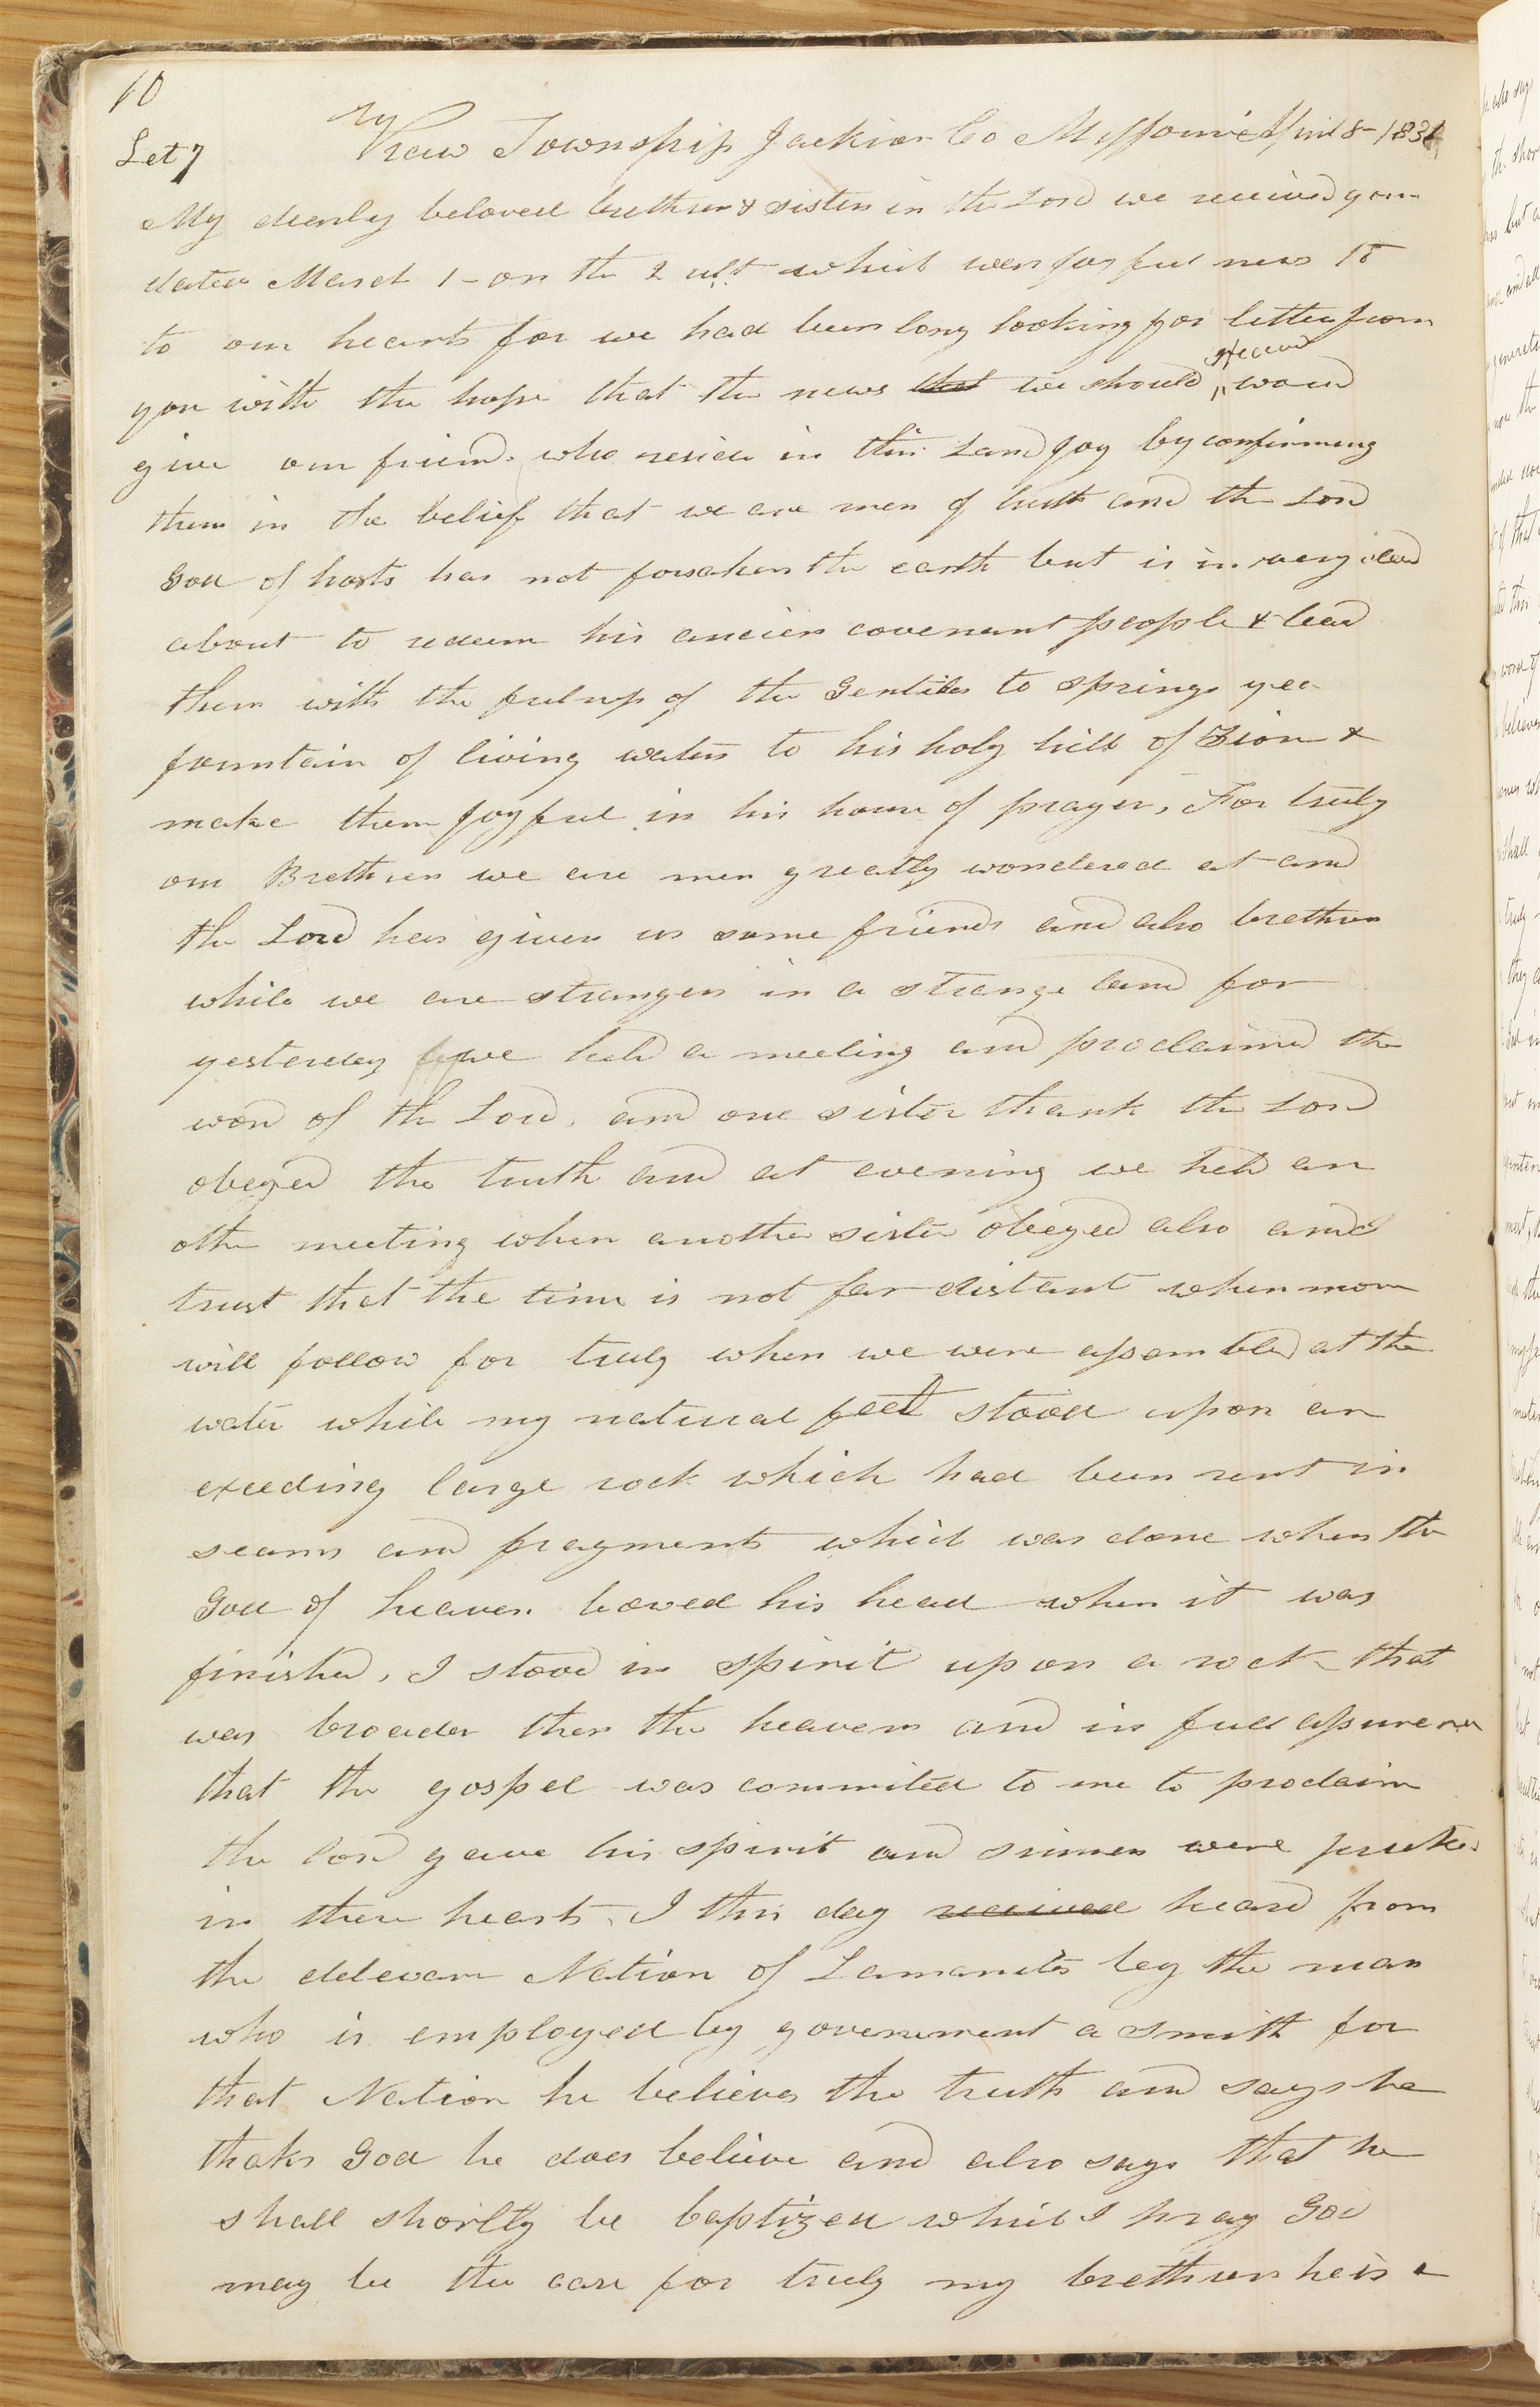 10
Let 7
Kaw Township Jackson Co Missouri April 8- 1831
My dearly beloved brethren & sisters in the Lord we received your
dated March 1- on the 2 ult which was joyful news to
to our hearts for we had been long looking for letters from
you with the hope that the news that we should receive would
give our friends who reside in this Land joy by confirming
them in the belief that we are men of truth and the Lord
God of hosts has not forsaken the earth but is in very deed
about to redeem his ancien covenant people & lead
them with the fulness of the Gentiles to springs yea
fountain of living waters to his holy hill of Zion &
make them joyful in his house of prayer, For truly
our Brethren we are men greatly wondered at and
the Lord has given us some friends and also brethren
while we are strangers in a strange land for
yesterday we held a meeting and proclaimed the
word of the Lord, and one sister thank the Lord
obeyed the truth and at evening we held an
other meeting when another sister obeyed also and
trust that the time is not far distant when more
will follow for truly when we were assembled at the
water while my natural feet stood upon an
exceeding large rock which had been rent in
seams and fragments which was done when the
God of heaven bowed his head when it was
finished, I stood in spirit upon a rock that
was broader then the heavens and in full assurence
that the gospel was commited to me to proclaim
the Lord gave his spirit and sinners were pricked
in there hearts, I this day received heard from
the deleware Nation of Lamanites by the man
who is employed by government a smith for
that Nation he believes the truth and says he
thaks God he does believe and also says that he
shall shortly be baptized which I pray God
may be the case for truly my brethren he is a